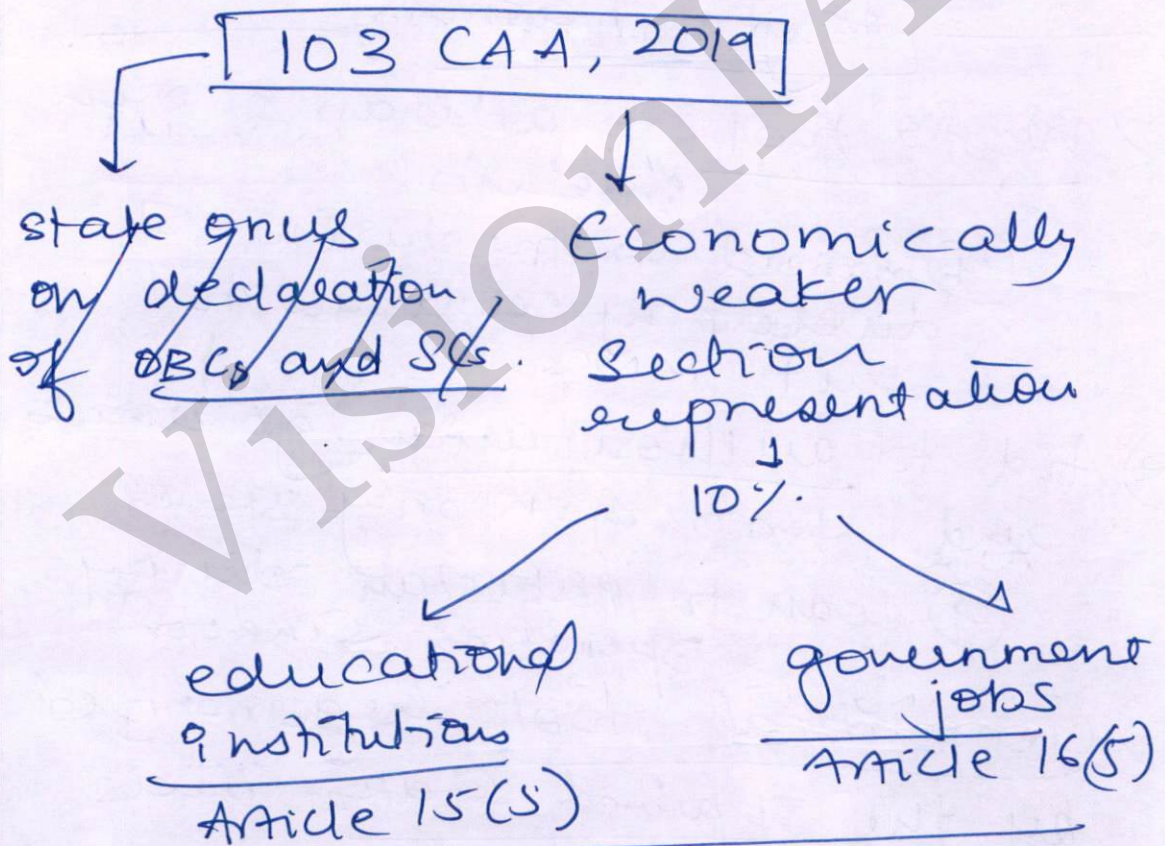 103 CAA, 2019
state onus
on declaration
of OBCs and SCs.
Economically
weaker
section
representation
10%.
educational
institutions
Article 15(5)
government
jobs
Article 16(5)
VisionIA